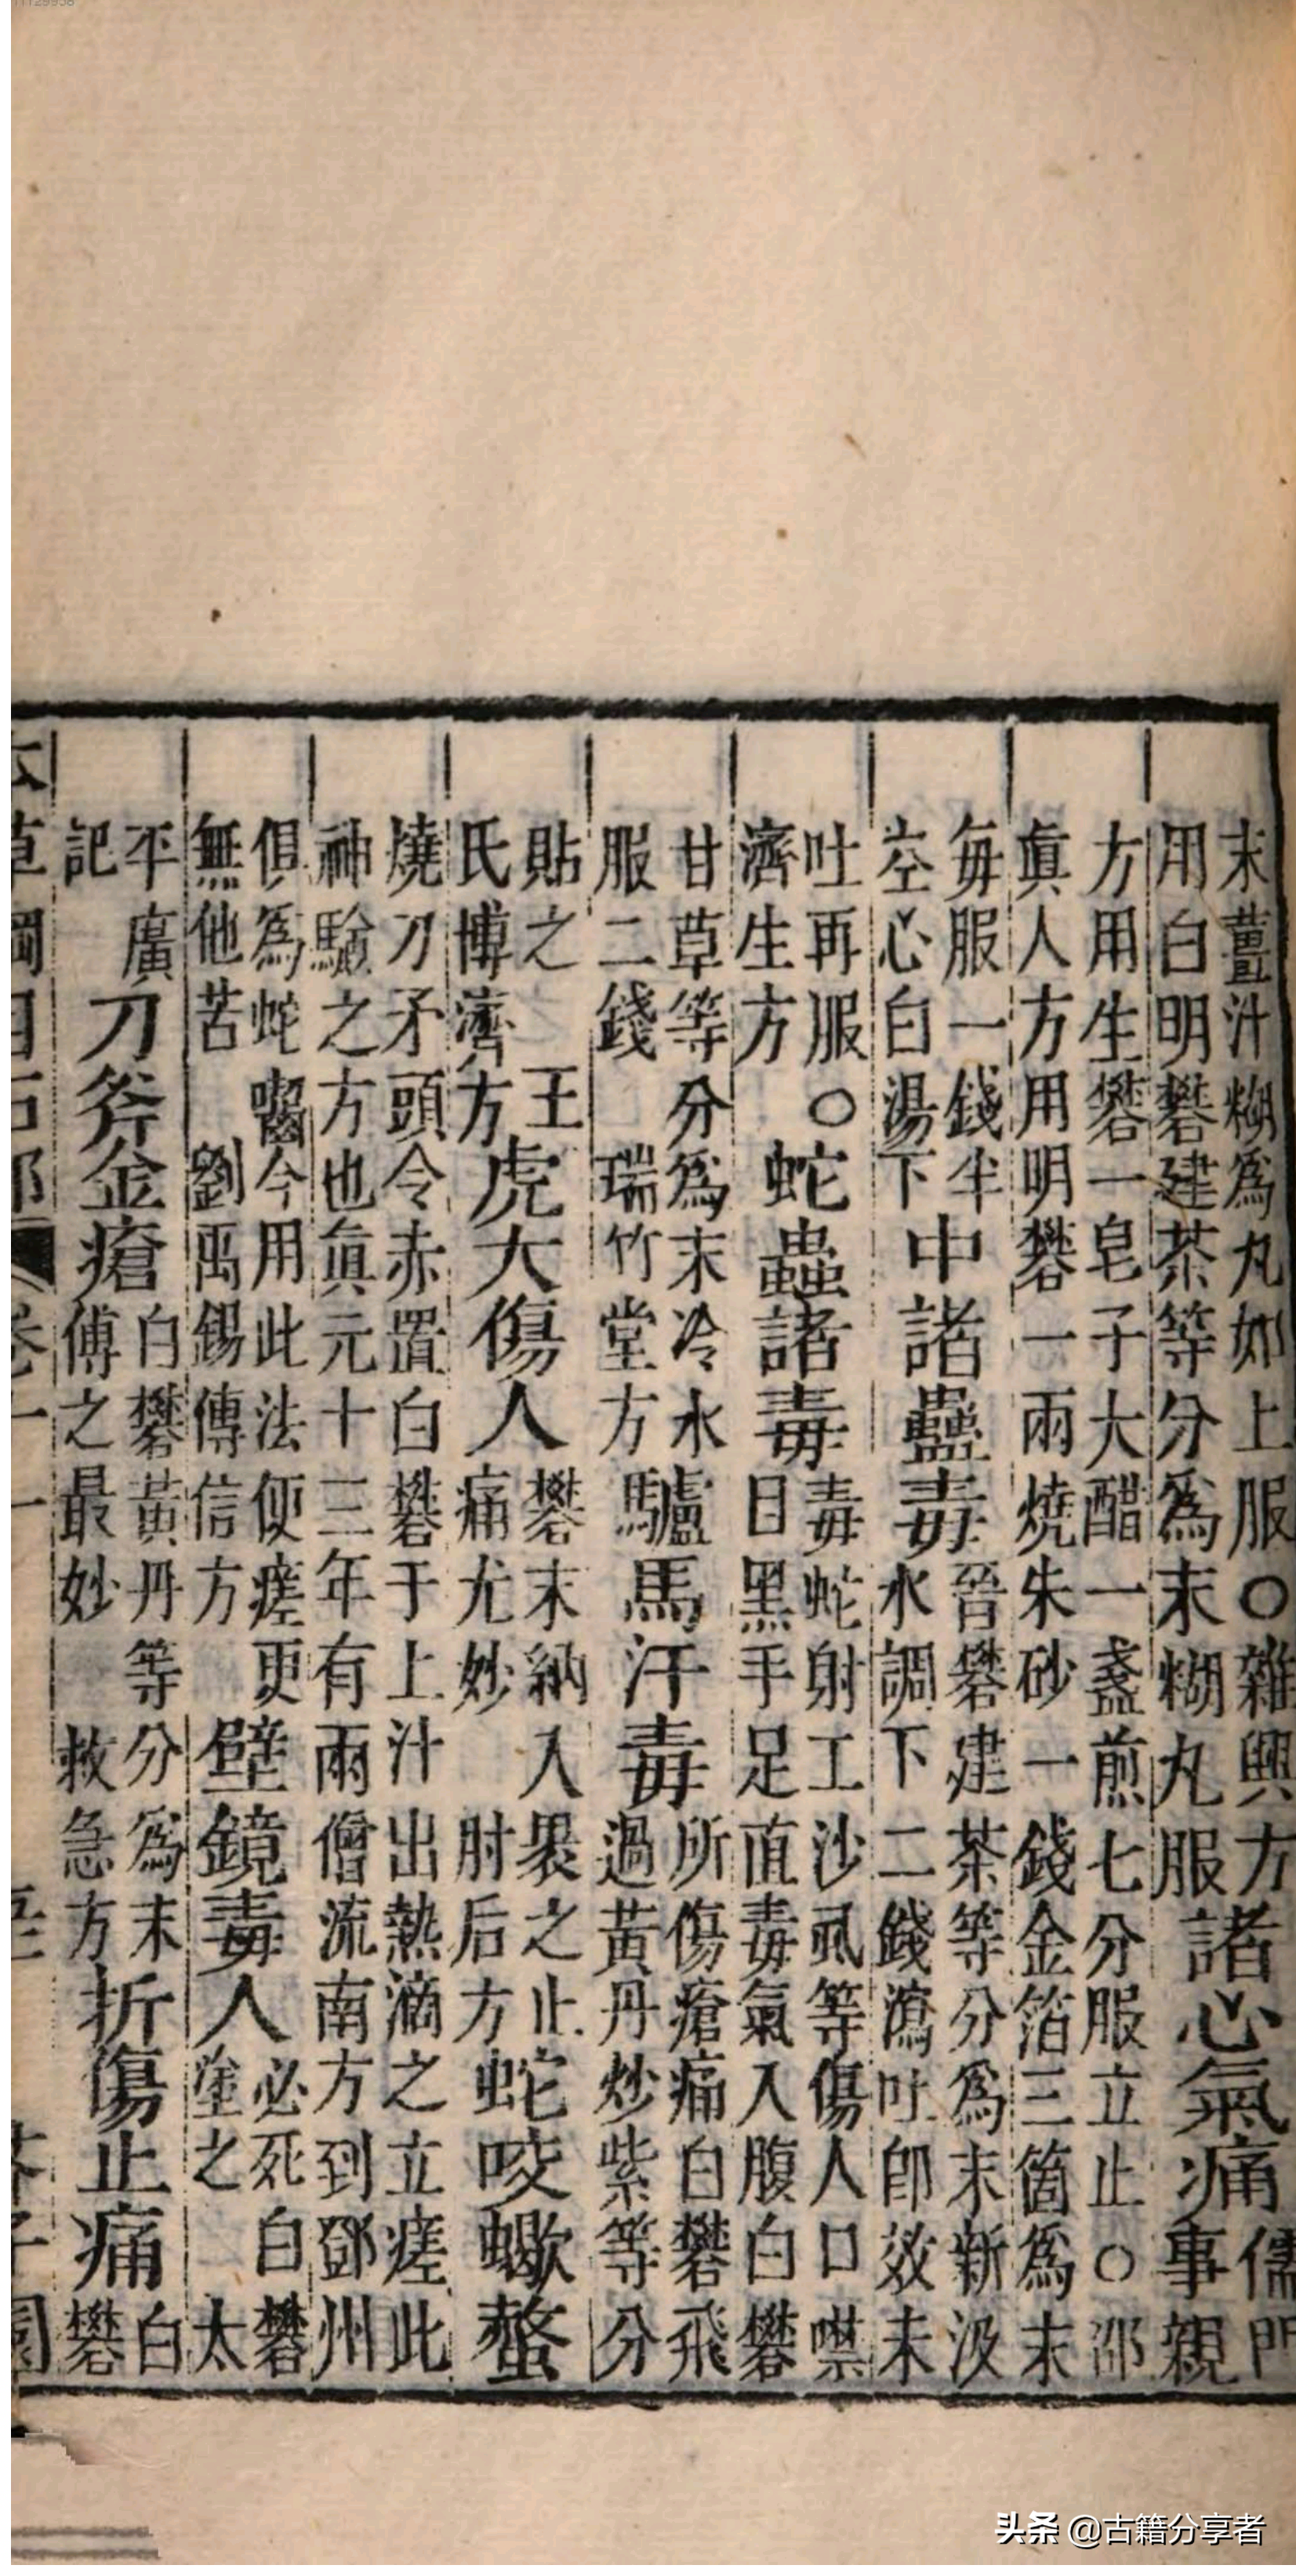 末薑汁糊爲丸如上服〇雜興方
用白明礬建茶等分爲末糊丸服
諸心氣痛
儒門
事親
方用生礬一皂子大醋一盞煎七分服立止〇邵
眞人方用明礬一兩燒朱砂一錢金箔三箇爲末
每服一錢半
空心白湯下
中諸蠱毒
晉礬建茶等分爲末新汲
水調下二錢瀉吐卽效未
吐再服〇
濟生方
蛇蟲諸毒
毒蛇射工沙虱等傷人口噤
目黑手足直毒氣入腹白礬
甘草等分爲末冷水
服二錢 瑞竹堂方
驢馬汗毒
所傷瘡痛白礬飛
過黃丹炒紫等分
貼之 王
氏博濟方
虎犬傷人
礬末納入裹之止
痛尤妙 肘后方
蛇咬蠍螫
燒刀矛頭令赤置白礬于上汁出熱滴之立瘥此
神驗之方也眞元十三年有兩僧流南方到鄧州
俱爲蛇嚙令用此法便瘥更
無他苦 劉禹錫傳信方
壁鏡毒人
必死白礬
塗之 太
平廣
記
刀斧金瘡
白礬黃丹等分爲末
傅之最妙 救急方
折傷止痛
白
礬
头条 @古籍分享者